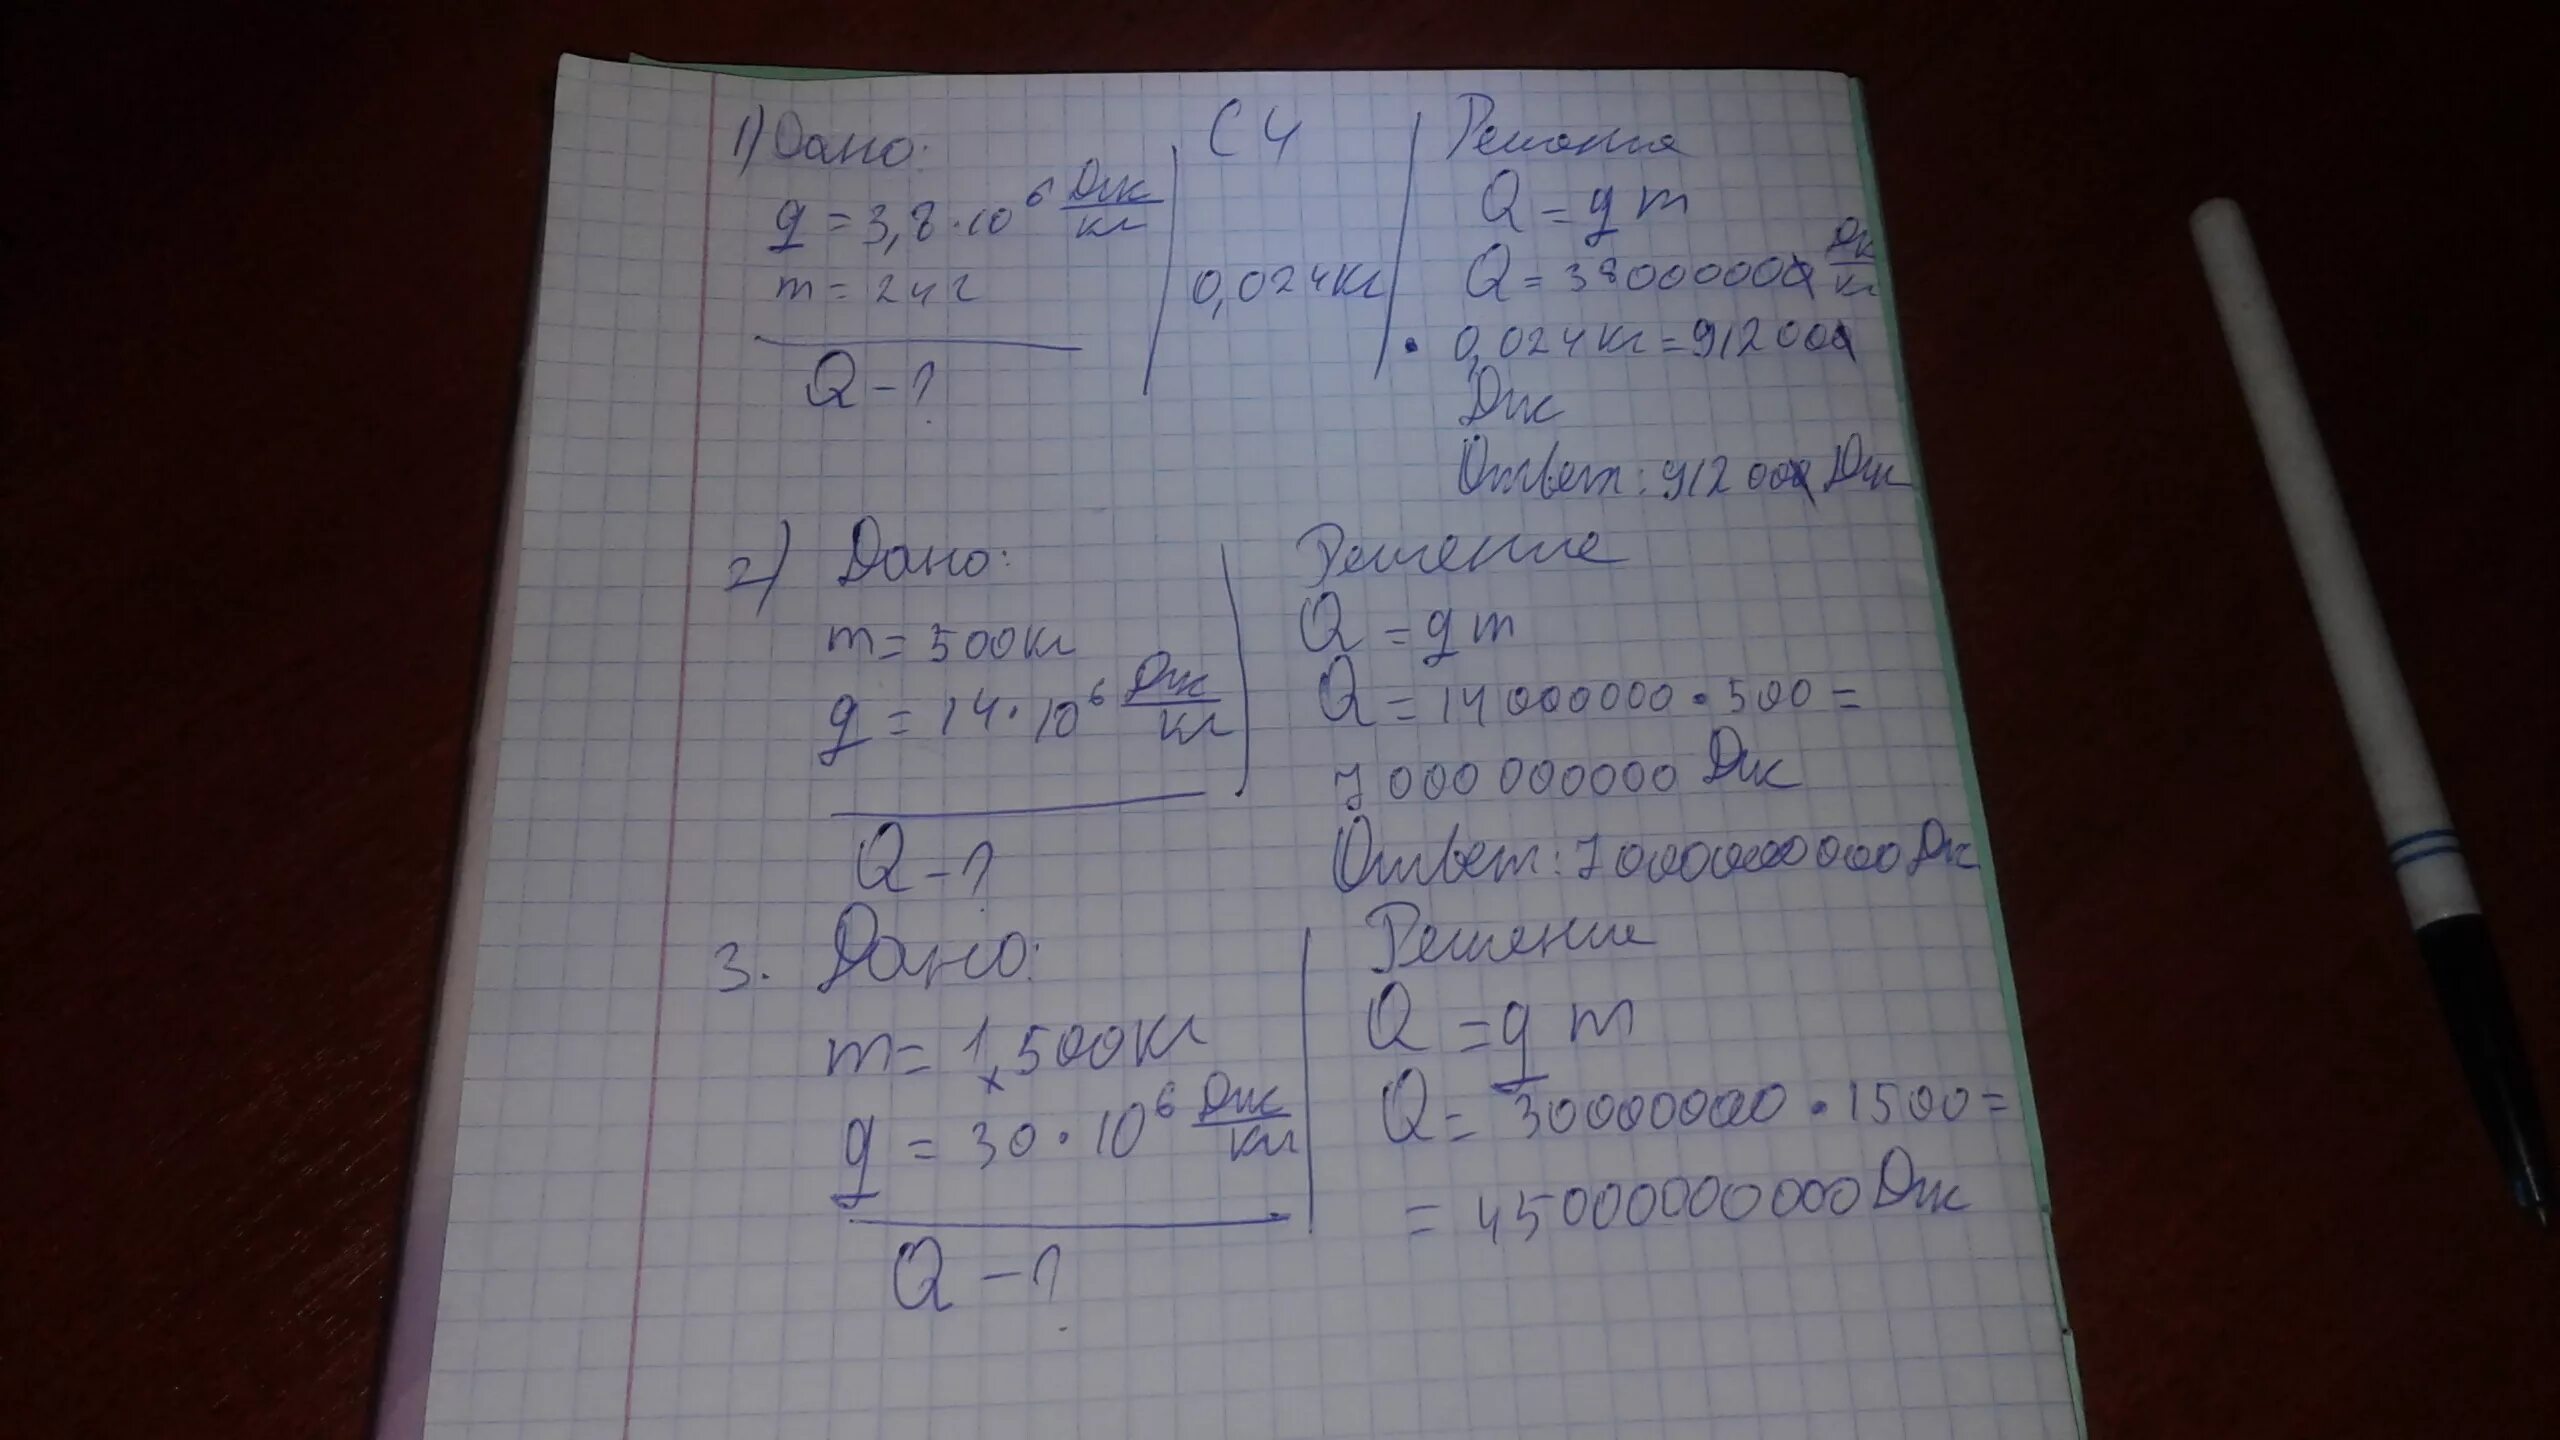 1) Дано:
q = 3,8·10⁶ Дж/кг
m = 24г
Q - ?
СИ
0,024кг
Решения
Q = q m
Q = 3800000 Дж/кг
· 0,024кг = 91200
Дж
Ответ: 91200 Дж
2) Дано:
m = 500кг
q = 14·10⁶ Дж/кг
Q - ?
Решение
Q = q m
Q = 14000000·500 =
7000000000 Дж
Ответ: 7000000000 Дж
3. Дано:
m = 1500кг
q = 30·10⁶ Дж/кг
Q - ?
Решение
Q = q m
Q = 30000000·1500 =
= 45000000000 Дж